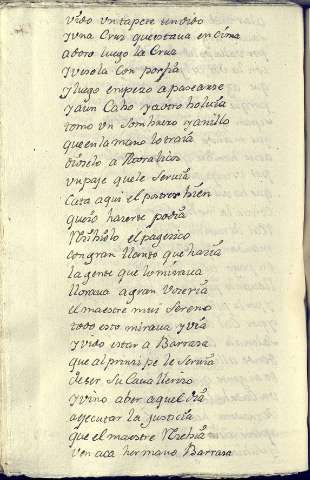 vido vn tapete tendido
y vna Cruz que estaua en cima
adoro luego la Cruz
y vesola con porfia
y luego empezo a pasearse
y a un Cabo y a otro boluia
tomo vn Sombrero y anillo
que en la mano lo traia
dioselo a Moralicos
vn paje que le Seruia
Cata aqui el postrer bien
que io hazerte podia
Recibiolo el pagecico
con gran llanto que hazia
la gente que lo miraua
lloraua a gran vozeria
el maestre mui Sereno
todo esto miraua y via
y vido estar a Barrasa
que al principe le Seruia
de ser Su Caua llerizo
y vino aber aquel dia
a ejecutar la justicia
que el maestre Recebia
ven aca hermano Barrasa